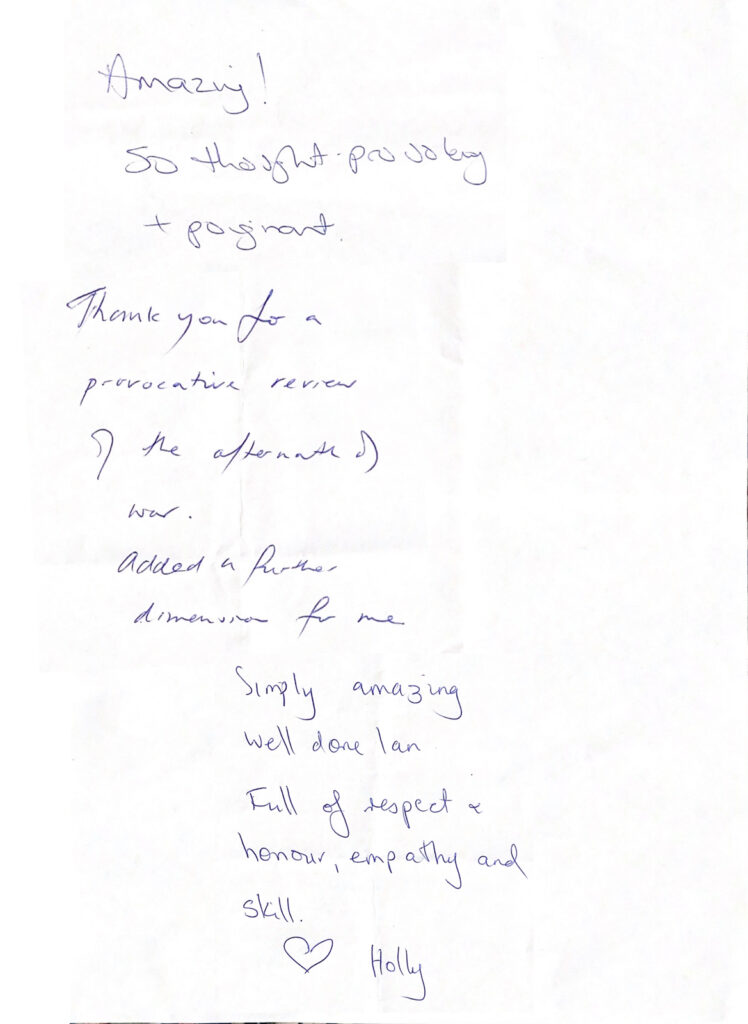 Amazing!
So thought-provoking
+ poignant.
Thank you for a
provocative review
of the aftermath of
war.
Added a further
dimension for me
Simply amazing
Well done Ian
Full of respect &
honour, empathy and
skill.
♡ Holly